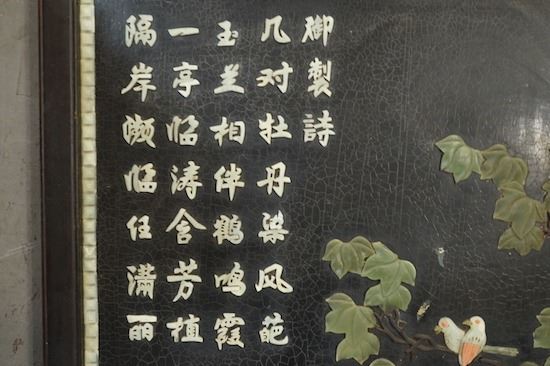 御製詩
几对牡丹梁风葩
玉兰相伴鹤鸣霞
一亭临涛含芳植
隔岸濒临任满丽